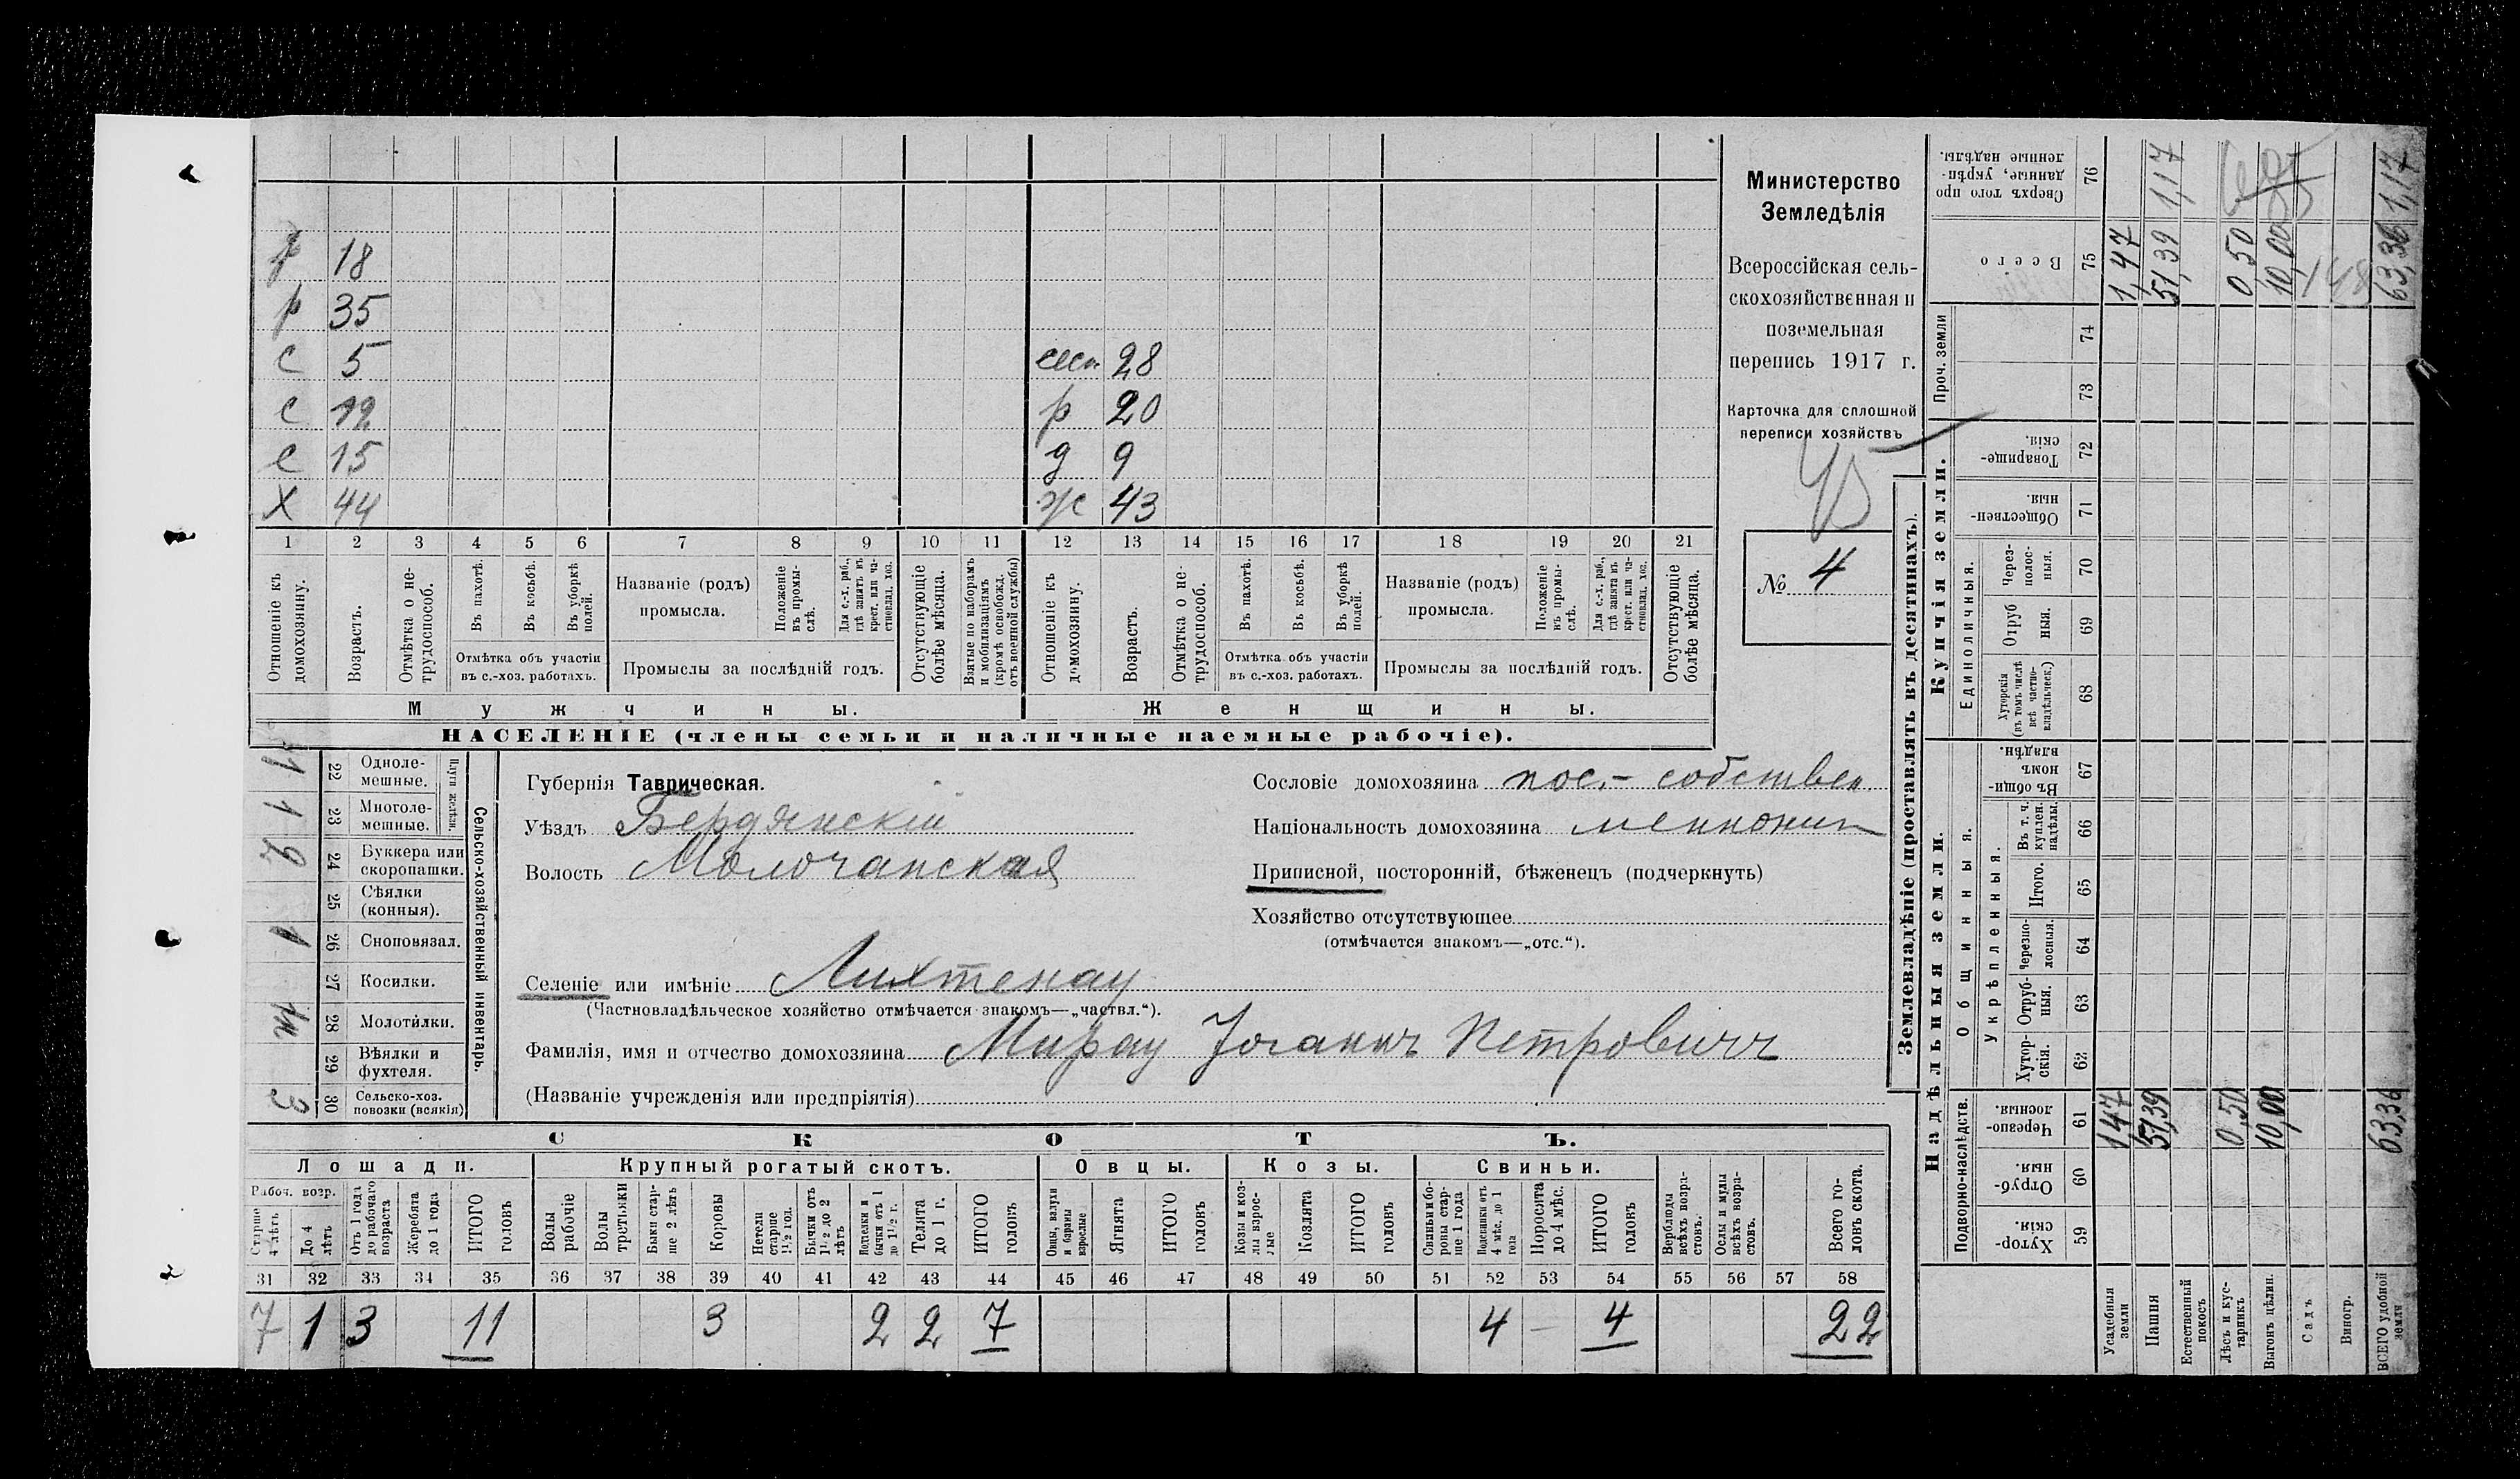 р 18
р 35
с 5 сест 28
с 12 р 20
с 15 д 9
Х 44 ж 43
1 2 3 4 5 6 7 8 9 10 11 12 13 14 15 16 17 18 19 20 21
Отношеніе къ домохозяину.
Возрастъ.
Отмѣтка о не-трудоспособ.
Въ пахотѣ.
Въ косьбѣ.
Въ уборкѣ полей.
Отмѣтка объ участіи
въ с.-хоз. работахъ.
Названіе (родъ)
промысла.
Положеніе въ промы-слѣ.
Для с.-х. раб., гдѣ занятъ въ крест. или ча-стновлад. хоз.
Промыслы за послѣдній годъ.
Отсутствующіе болѣе мѣсяца.
Взятые по наборамъ и мобилизаціямъ (кромѣ освобожд. отъ военной службы)
Отношеніе къ домохозяину.
Возрастъ.
Отмѣтка о не-трудоспособ.
Въ пахотѣ.
Въ косьбѣ.
Въ уборкѣ полей.
Отмѣтка объ участіи
въ с.-хоз. работахъ.
Названіе (родъ)
промысла.
Положеніе въ промы-слѣ.
Для с.-х. раб., гдѣ занята въ крест. или ча-стновлад. хоз.
Промыслы за послѣдній годъ.
Отсутствующіе болѣе мѣсяца.
Мужчины. Женщины.
НАСЕЛЕНІЕ (члены семьи и наличные наемные рабочіе).
Министерство
Земледѣлія
Всероссійская сель-
скохозяйственная и
поземельная
перепись 1917 г.
Карточка для сплошной
переписи хозяйствъ
№ 4
Сельско-хозяйственный инвентарь.
Плуги желѣзн.
1 22 Одноле-мешные.
1 23 Многоле-мешные.
2 24 Буккера или скоропашки.
25 Сѣялки (конныя).
1 26 Сноповязал.
27 Косилки.
28 Молотилки.
29 Вѣялки и фухтеля.
3 30 Сельско-хоз. повозки (всякія)
Губернія Таврическая.
Уѣздъ Бердянскій
Волость Молочанская
Сословіе домохозяина пос.- собствен.
Національность домохозяина меннонит
Приписной, посторонній, бѣженецъ (подчеркнуть)
Хозяйство отсутствующее
(отмѣчается знакомъ—„отс.“).
Селеніе или имѣніе Лихтенау
(Частновладѣльческое хозяйство отмѣчается знакомъ—„частвл.“).
Фамилія, имя и отчество домохозяина Мирау Іоганнъ Петровичъ
(Названіе учрежденія или предпріятія)
СКОТЪ.
Лошади. Крупный рогатый скотъ. Овцы. Козы. Свиньи.
Рабоч. возр.
Старше 4 лѣтъ
До 4 лѣтъ
Отъ 1 года до рабочаго возраста
Жеребята до 1 года
ИТОГО головъ
Волы рабочіе
Волы третьяки
Быки стар-ше 2 лѣтъ
Коровы
Нетели старше 1½ год.
Бычки отъ 1½ до 2 лѣтъ
Подтелки и бычки отъ 1 до 1½ г.
Телята до 1 г.
ИТОГО головъ
Овцы, валухи и бараны взрослые
Ягнята
ИТОГО головъ
Козы и коз-лы взрос-лые
Козлята
ИТОГО головъ
Свиньи и бо-ровы стар-ше 1 года
Подсвинки отъ 4 мѣс. до 1 года
Поросята до 4 мѣс.
ИТОГО головъ
Верблюды всѣхъ возра-стовъ.
Ослы и мулы всѣхъ возра-стовъ.
Всего го-ловъ скота.
31 32 33 34 35 36 37 38 39 40 41 42 43 44 45 46 47 48 49 50 51 52 53 54 55 56 57 58
7 1 3 11 3 2 2 7 4 — 4 22
Землевладѣніе (проставлять въ десятинахъ).
Надѣльныя земли. Купчія земли.
Подворно-наслѣдств.
Общинныя.
Укрѣпленныя.
Единоличныя.
Проч. земли
Хутор-скія. 59
Отруб-ныя. 60
Черезпо-лосныя. 61
Хутор-скія. 62
Отруб-ныя. 63
Черезпо-лосныя. 64
Итого. 65
Въ т. ч. куплен. надѣлы. 66
Въ общи-номъ владѣн. 67
Хуторскія (въ томъ числѣ всѣ частно-владѣльческ.) 68
Отруб ныя. 69
Через-полос-ныя. 70
Обществен-ныя. 71
Товарище-скія. 72
73
74
Всего 75
Сверхъ того про данные, укрѣп-ленные надѣлы. 76
Усадебныя земли 1,47 1,47
Пашня 51,39 51,39 1,17
Естественный покосъ
Лѣсъ и кус-тарникъ 0,50 0,50
Выгонъ цѣлин. 10,00 10,00
Садъ
Виногр.
ВСЕГО удобной земли 63,36 63,36 1,17